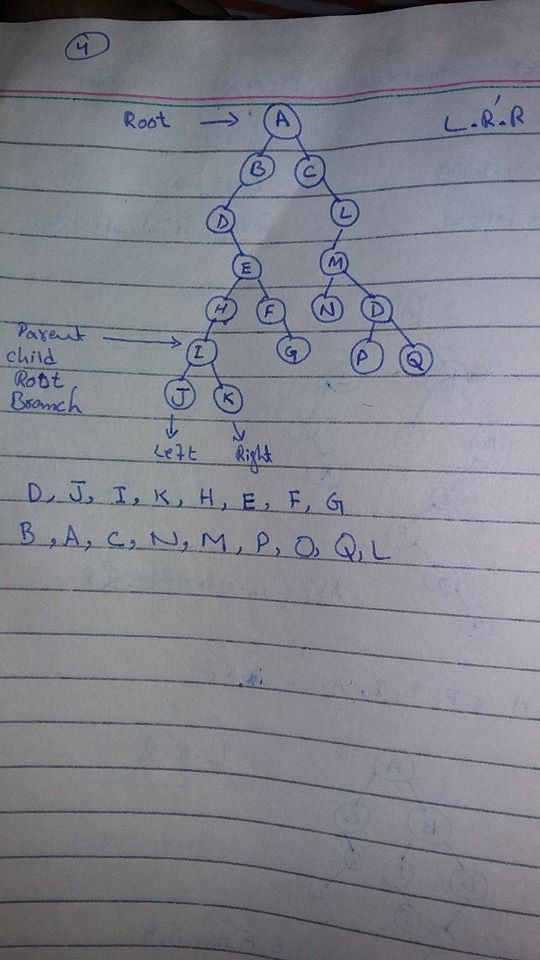 4
Root → A L.R'.R
B C
D L
E M
H F N D
Parent → I G P Q
child
Root
Branch J K
Left Right
D, J, I, K, H, E, F, G
B, A, C, N, M, P, O, Q, L